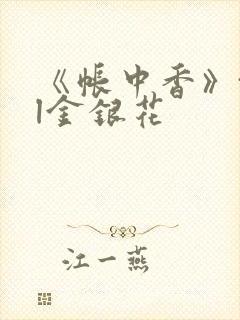 《帐中香》
|金银花
江一燕